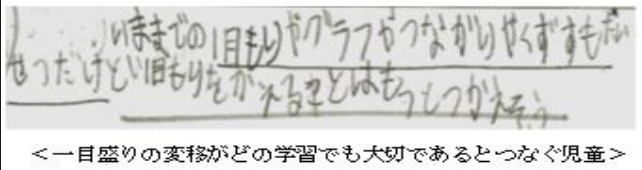 いままでの1目もりやグラフやつながりやくずすもたい
せつだけど1目もりをかえることはもっとつかえそう
＜一目盛りの変移がどの学習でも大切であるとつなぐ児童＞